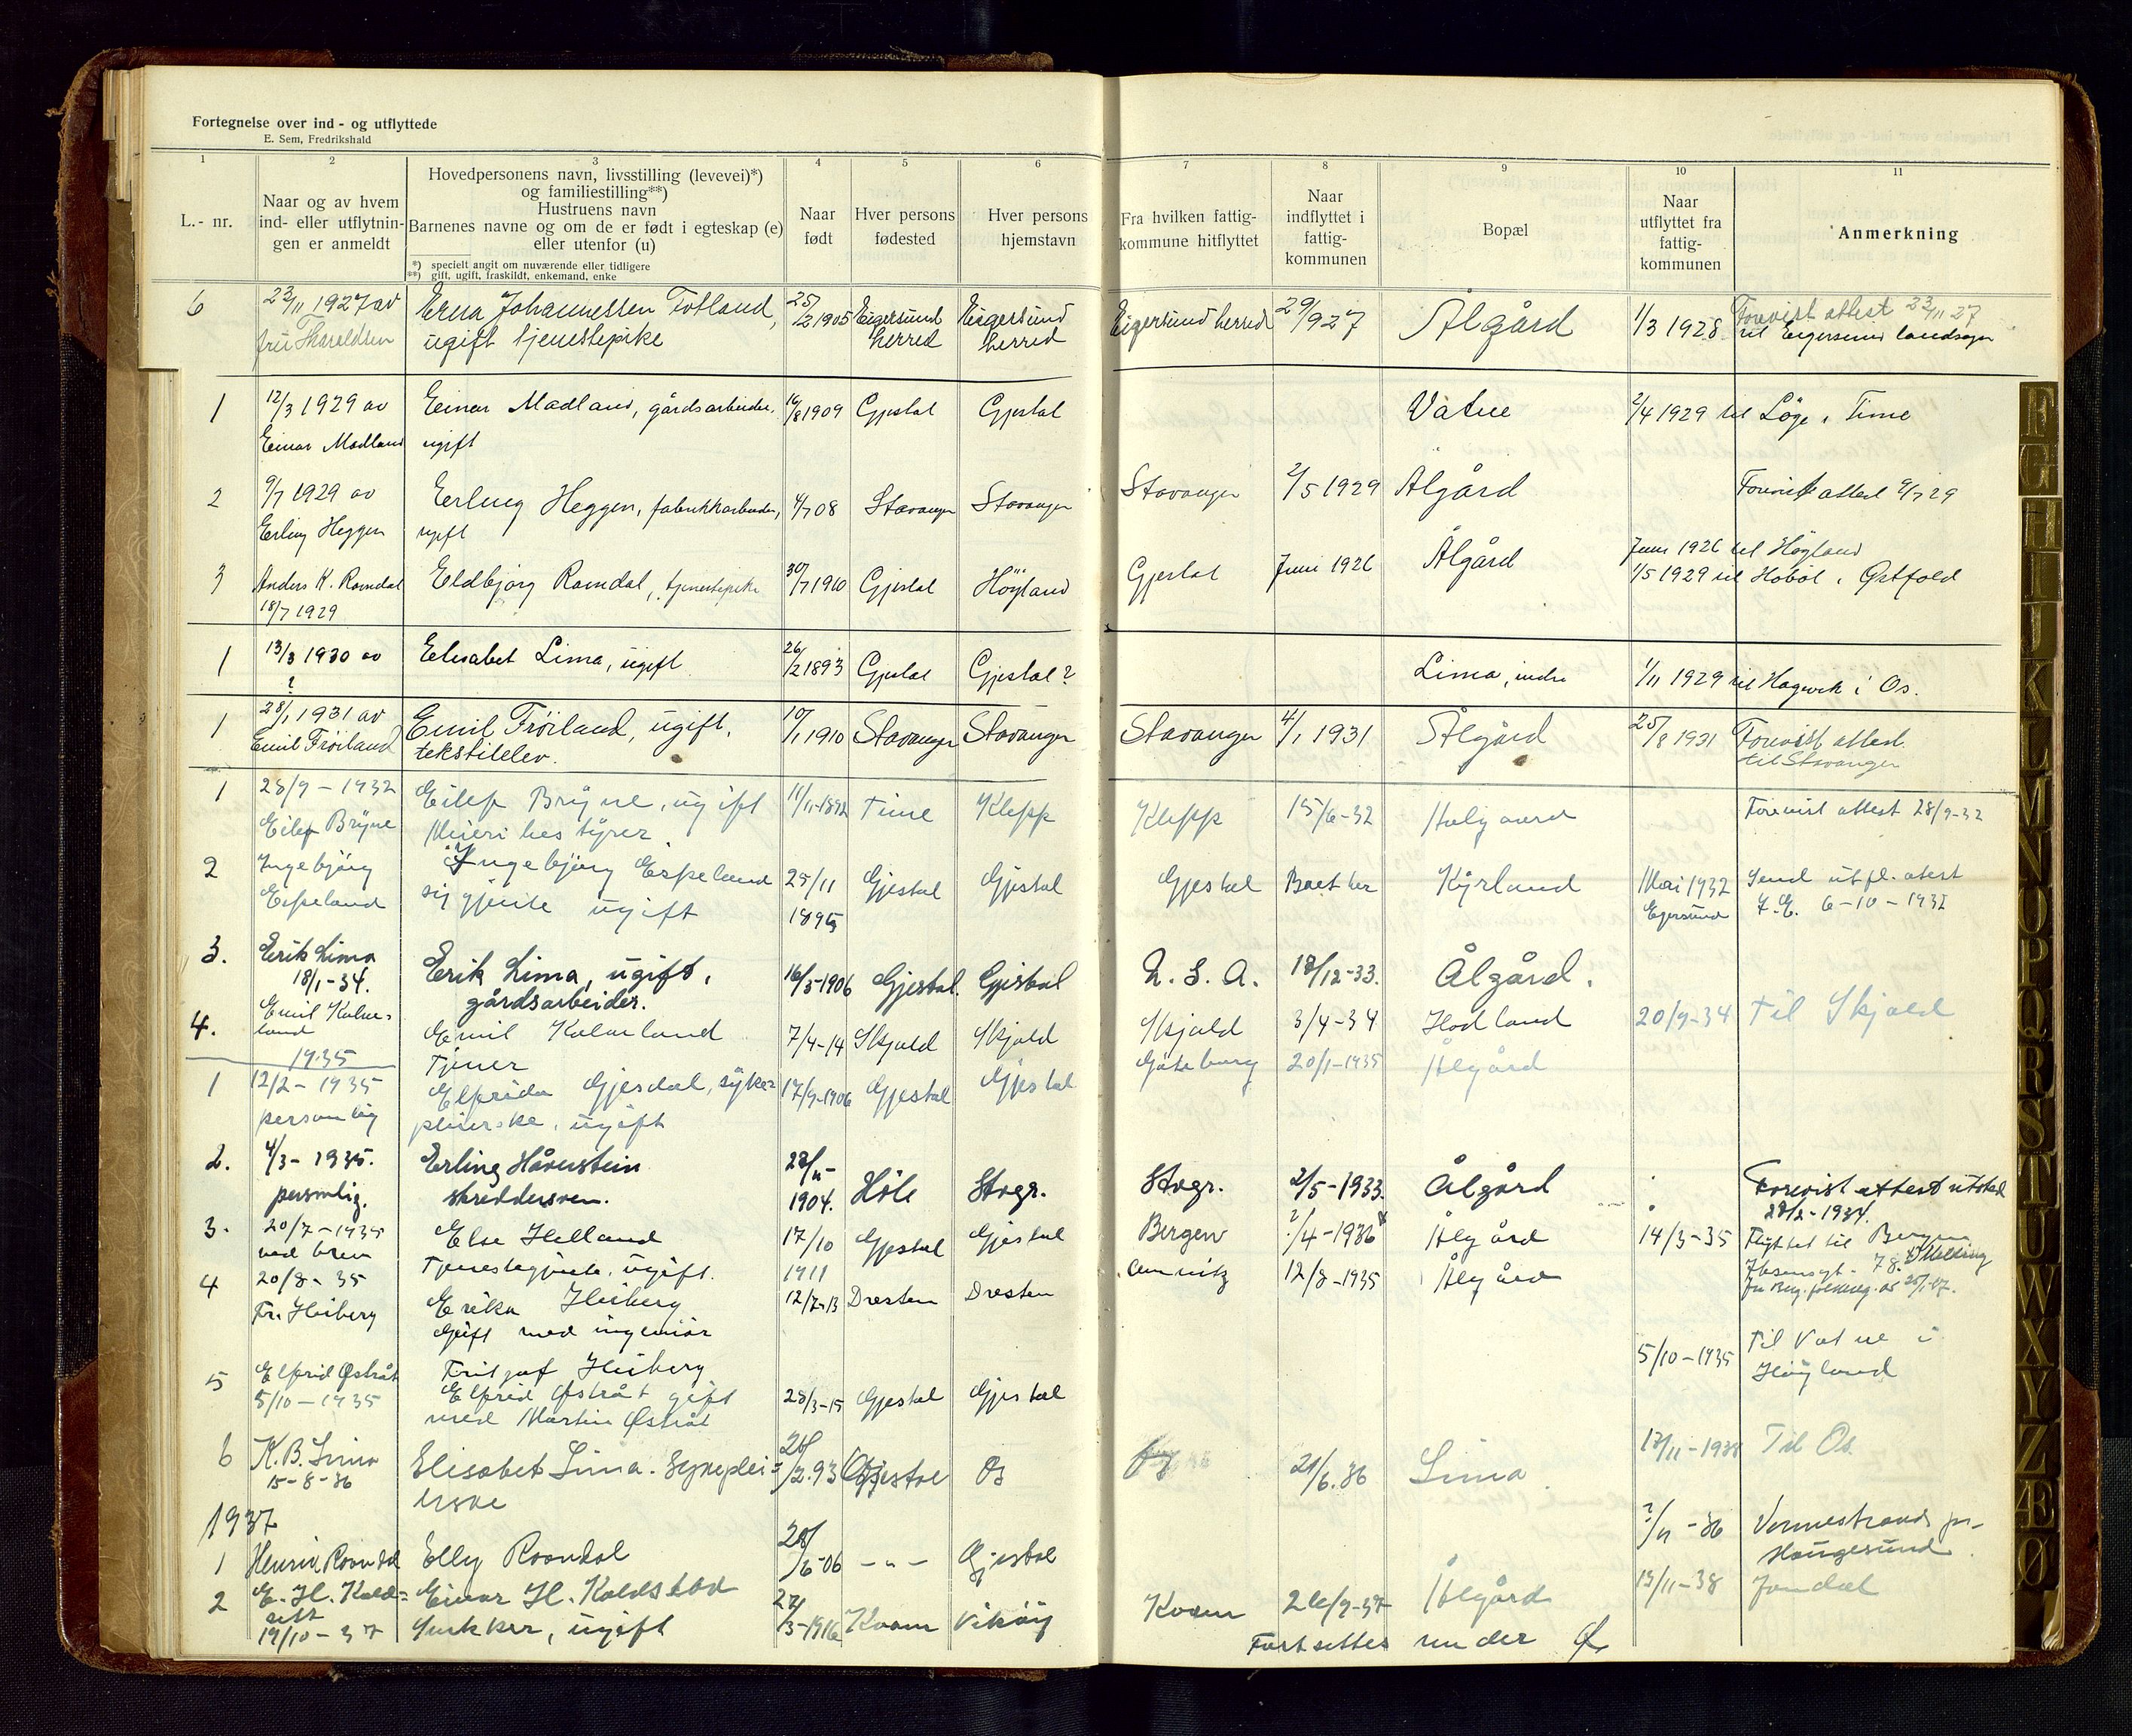 Fortegnelse over ind - og utflyttede
E. Sem, Fredrikshald
1 2 3 4 5 6 7 8 9 10 11
L.- nr.
Naar og av hvem
ind- eller utflytnin-
gen er anmeldt
Hovedpersonens navn, livsstilling (levevei)*)
og familiestilling**)
Hustruens navn
Barnenes navne og om de er født i egteskap (e)
eller utenfor (u)
*) specielt angit om nuværende eller tidligere
**) gift, ugift, fraskildt, enkemand, enke
Naar
født
Hver persons
fødested
Hver persons
hjemstavn
Fra hvilken fattig-
kommune hitflyttet
Naar
indflyttet i
fattig-
kommunen
Bopæl
Naar
utflyttet fra
fattig-
kommunen
Anmerkning
6 23/11 1927 av Erna Johannessen Totland, 25/2 1905 Eigersund Eigersund Eigersund herred 29/9 27 Ålgård 1/3 1928 Forevist attest 23/11 27
fru Tharaldsen ugift tjenestepike herred herred til Eigersund landsogn
1 12/3 1929 av Einar Madland, gårdsarbeider, 16/8 1909 Gjestal Gjestal Vatne 2/4 1929 til Løge i Time
Einar Madland ugift
2 9/7 1929 av Erling Heggen, fabrikkarbeider, 4/7 08 Stavanger Stavanger Stavanger 2/5 1929 Ålgård Forevist attest 9/7 29
Erling Heggen ugift
3 Anders K. Ramdal Eldbjørg Ramdal, tjenestepike 30/7 1910 Gjestal Höyland Gjestal Juni 1926 Ålgård Juni 1926 til Høyland
18/7 1929 1/5 1929 til Hobøl i Østfold
1 13/3 1930 av Elisabet Lima, ugift 26/2 1893 Gjestal Gjestal? Lima, indre 1/11 1929 til Hagevik i Os.
?
1 28/1 1931 av Emil Fröiland, ugift, 10/1 1910 Stavanger Stavanger Stavanger 4/1 1931 Ålgård 25/8 1931 Forevist attest.
Emil Fröiland tekstilelev. til Stavanger
1 28/9 - 1932 Eilef Bryne, ugift 11/11-1892 Time Klepp Klepp 15/6-32 Aalgaard Forevist attest 28/9-32
Eilef Bryne Meieribestyrer
2 Ingebjörg Ingebjörg Espeland 25/11 Gjestal Gjestal Gjestal Kyrland Mai 1932 Send utfl. atest
Espeland ugift 1895 Egersund F.E. 6-10-1932
3. Erik Lima Erik Lima, ugift, 16/3-1906 Gjestal. Gjestal U. S. A. 18/12-33. Ålgård.
18/1-34. gårdsarbeider.
4. Emil Kalve- Emil Kalveland 7/4-14 Skjold Skjold Skjold 3/4-34 Hodland 20/9-34 Til Skjold
land Tjener
1935
1 12/2 - 1935 Elfrida Gjesdal, syke- 17/9-1906 Gjestal Gjestal Göteborg 20/1-1935 Ålgård
personlig pleierske, ugift
2. 4/3 - 1935. Erling Håvestein 1904. Höle Stvgr. Stvgr. 2/5-1933. Ålgård Forevist attest utsted
personlig. skreddersven. 28/2-1934.
3. 20/7-1935 Else Helland 17/10 Gjestal Gjestal Bergen ?/4-1936 Ålgård 14/3-35 Flyttet til Bergen
ved brev Tjenestegjente, ugift. 1911
4 20/8-35 Erika Heiberg 12/7-13 Dresten Dresten 12/8-1935 Ålgård
Fr. Heiberg Gift med ingeniör
Fritjof Heiberg
5 Elfrid Østråt Elfrid Østråt gift 28/3-15 Gjestal Gjestal 5/10-1935 Til Vatne i
5/10-1935 med Martin Østråt Höyland
6 K. B. Lima Elisabet Lima. Sykeplei- 26/2.93 Gjestal Os 21/6.36 Lima 17/11-1938 Til Os.
15-8-36 erske
1937
1 Henrik Ramdal Elly Ramdal 28/6-06 -"- Gjestal ?/11-36 Haugesund
2 E. H. Kold- Einar H. Koldstad 27/3-1916 Kvam Vikøy Kvam 26/9-37 Ålgård 15/11-38 Jondal
19/10-37 Snekker, ugift
Fortsettes under Ø
F G H I J K L M N O P Q R S T U W X Y Z Æ Ø